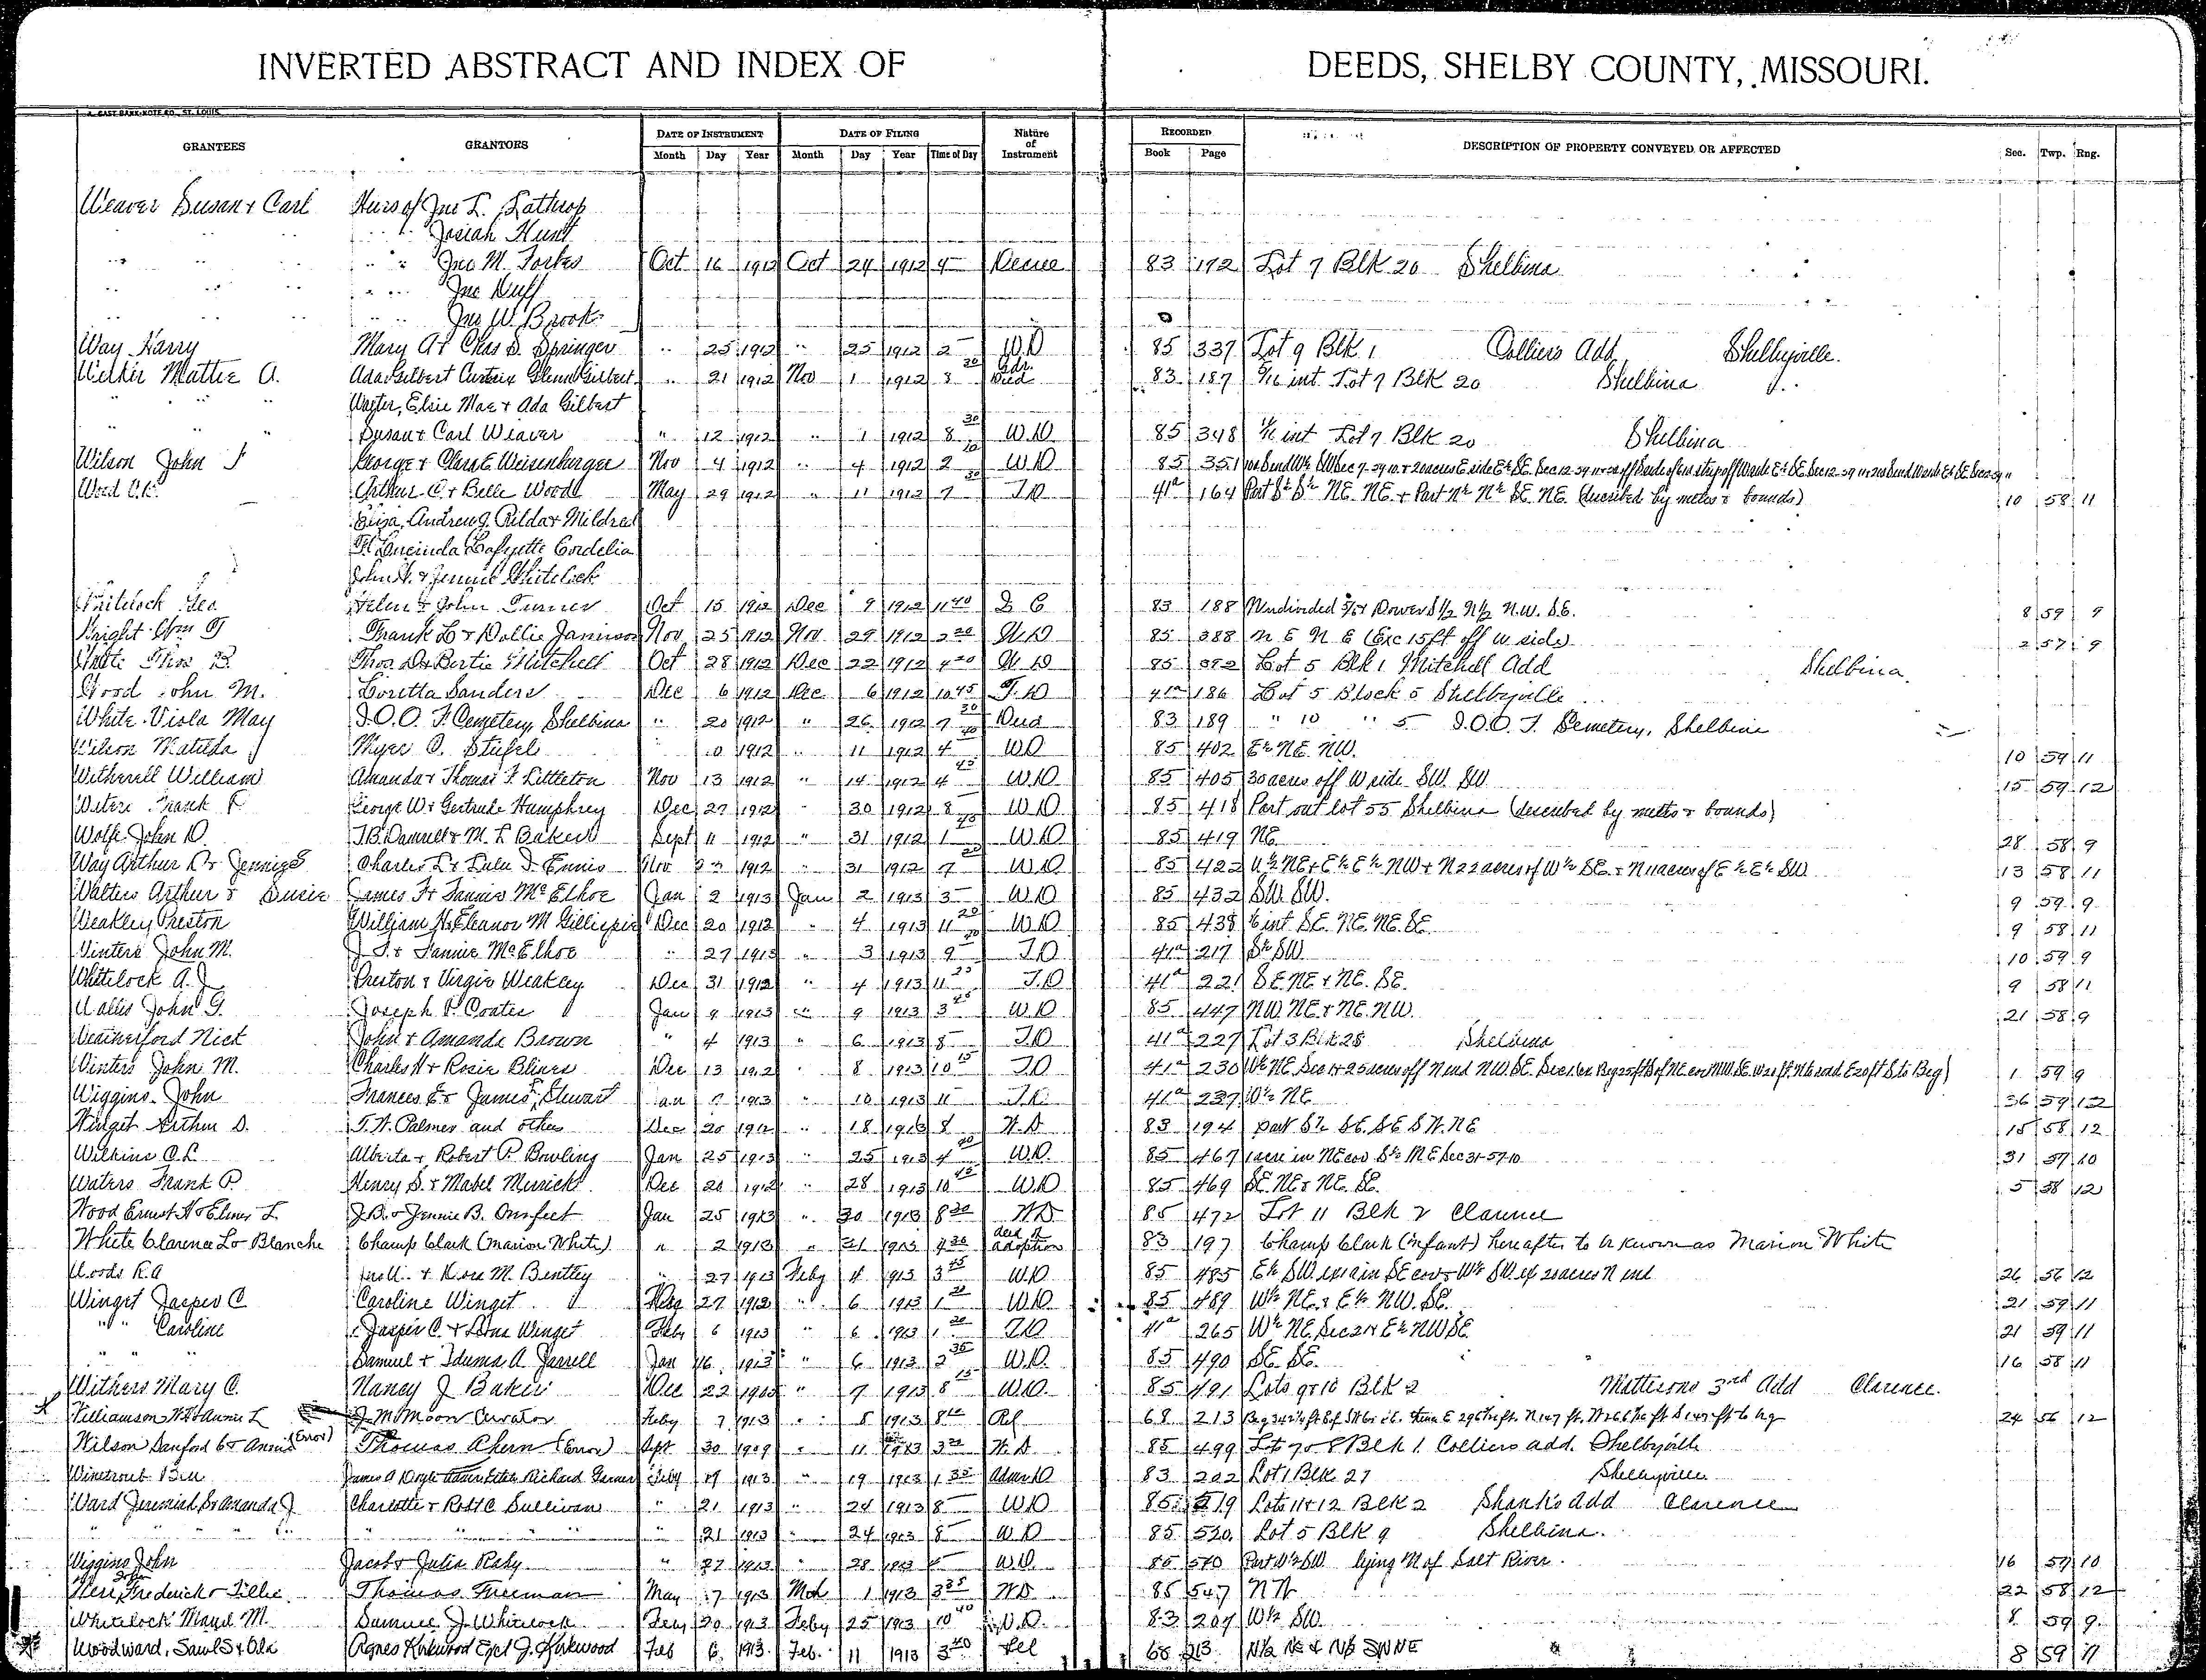 INVERTED ABSTRACT AND INDEX OF DEEDS, SHELBY COUNTY, MISSOURI.
GRANTEES GRANTORS DATE OF INSTRUMENT DATE OF FILING Nature of Instrument RECORDED DESCRIPTION OF PROPERTY CONVEYED OR AFFECTED Sec. Twp. Rng.
Month Day Year Month Day Year Time of Day Book Page
Weaver Susan & Carl Heirs of Jno L. Lathrop
" " Josiah Hunt
" " " " " Jno M. Forbes Oct 16 1912 Oct 24 1912 4 83 192 Lot 7 Blk 20 Shelbina
" " " " " Jno Duff
" " " " " Jno W. Brooks
Way Harry Mary A & Chas S. Springer " 25 1912 " 25 1912 2 W.D 85 337 Lot 9 Blk 1 Colliers Add Shelbyville.
Mattie A. Ada Gilbert Glenn Gilbert " 21 1912 Nov 1 1912 8 30 Deed 83 187 int Lot 7 Blk 20 Shelbina
" " " Walter, Elsie Mae & Ada Gilbert
" " " Susan & Carl Weaver " 12 1912 " 1 1912 8 30 W.D 85 348 int Lot 7 Blk 20 Shelbina
Wilson John J George & Clara E Weisenburger Nov 4 1912 " 4 1912 2 W.D 85 351
Wood C.E. Arthur C. & Belle Wood May 29 1912 " 11 1912 7 T.D 41a 164 Part S½ S½ NE. NE. & Part N½ N½ SE. NE. (described by metes & bounds) 10 58 11
Eliza, Andrew J. Rilda & Mildred
F. Lucinda Lafyette Cordelia
John W. & Jennie Whitelock
Whitelock Geo Helen & John Turner Oct 15 1912 Dec 9 1912 11 40 Q C 83 188 Undivided Dower S 1/2 N 1/2 N.W. S.E. 8 59 9
Wright Wm T Frank L & Dollie Jamison Nov 25 1912 Nov 29 1912 2 20 W.D 85 388 N E N E (Exc 15 ft off W side) 2 57 9
White Thos B. Thos D & Bertie Mitchell Oct 28 1912 Dec 22 1912 4 20 W D 85 392 Lot 5 Blk 1 Mitchell Add Shelbina.
Wood John M. Loretta Sanders Dec 6 1912 Dec 6 1912 10 45 T.D 41a 186 Lot 5 Block 5 Shelbyville
White Viola May I.O.O.F. Cemetery, Shelbina " 20 1912 " 26 1912 7 30 Deed 83 189 " 10 " 5 I.O.O.F. Cemetery, Shelbina
Wilson Matilda J Myer O. Stiefel " 10 1912 " 11 1912 4 40 WD 85 402 E½ NE. NW. 10 59 11
Witherell William Amanda & Thomas F. Littleton Nov 13 1912 " 14 1912 4 45 W.D 85 405 30 acres off W side SW. SW. 15 59 12
Waters Frank P. George W & Gertrude Humphrey Dec 27 1912 " 30 1912 8 W.D 85 418 Part out lot 55 Shelbina (described by metes & bounds)
Wolfe John D. & M. L Baker Sept 11 1912 " 31 1912 1 45 W.D 85 419 NE. 28 58 9
Way Arthur R & Jennie S Charles L & Lulu I. Ennis Nov 23 1912 " 31 1912 7 20 W.D 85 422 W½ NE & E½ E½ NW & N 22 acres of W½ SE. & N 11 acres of E½ E½ SW 13 58 11
Walters Arthur & Susie James F & Fannie McElhoe Jan 2 1913 Jan 2 1913 3 W.D 85 432 SW. SW. 9 59 9
Weakley Preston William H & Eleanor M Gillispie Dec 20 1912 " 4 1913 11 20 W.D 85 438 int SE. NE. NE. SE 9 58 11
Winters John M. J. F. & Fannie McElhoe " 27 1913 " 3 1913 9 30 T.D 41a 217 S½ SW 10 59 9
Whitelock A. J Preston & Virgie Weakley Dec 31 1912 " 4 1913 11 25 T.D 41a 221 S.E. NE & NE. SE. 9 58 11
Wallis John G. Joseph P. Coates Jan 9 1913 " 9 1913 3 45 W.D 85 447 NW. NE & NE. NW. 21 58 9
Weatherford Nick John & Amanda Brown " 4 1913 " 6 1913 8 T.D 41a 227 Lot 3 Blk 28 Shelbina
Winters John M. Charles H & Rosie Blines Dec 13 1912 " 8 1913 10 15 T.D 41a 230 1 59 9
Wiggins John Frances E & James F. Stewart Jan 7 1913 " 10 1913 11 T.D. 41a 237 W½ NE 36 59 12
Winget Arthur D. T. W. Palmer and others Dec 20 1912 " 18 1913 8 W.D 83 194 part S½ SE. SE S W. NE 15 58 12
Wilkins C. L Alberta & Robert P. Bowling Jan 25 1913 " 25 1913 4 20 W.D. 85 467 1 acre in NE cor S½ NE Sec 31-57-10 31 57 10
Waters Frank P. Henry S. & Mabel Merrick Dec 20 1912 " 28 1913 10 45 W.D 85 469 SE. NE & NE. SE. 5 58 12
Wood Ernest H & Elmer L J.B. & Jennie B. Onsfeet Jan 25 1913 " 30 1913 8 30 W D 85 472 Lot 11 Blk 2 Clarence
White Clarence L & Blanche Champ Clark (Marion White) " 2 1913 " 31 1913 4 30 Deed of adoption 83 197 Champ Clark (infant) hereafter to be known as Marion White
Woods R.A & Dora M. Bentley " 27 1913 Feby 4 1913 3 45 W.D 85 485 26 56 12
Winget Jasper C Caroline Winget Feby 27 1913 " 6 1913 1 20 W.D. 85 489 W½ NE. & E½ NW. SE. 21 59 11
" " Caroline Jasper C. & Winget Feby 6 1913 " 6 1913 1 20 T.D 41a 265 W½ NE. Sec 21 & E½ NW SE 21 59 11
" " " Samuel & Iduma A. Jarrell Jan 16 1913 " 6 1913 2 35 W.D. 85 490 SE. SE. 16 58 11
Withers Mary C. Nancy J. Baker Dec 22 1910 " 7 1913 8 15 W.D. 85 491 Lots 9 & 10 Blk 2 Mattersons 3rd Add Clarence.
Williamson & Annie L J.M. Moon Curator Feby 7 1913 " 8 1913 8 10 Rel 68 213 24 56 12
Wilson Sanford C & Annie (Error) Thomas Ahern (Error) Sept 30 1909 " 11 1913 3 20 W.D 85 499 Lots 7 & 8 Blk 1 Colliers add. Shelbyville
Winetrout Bell James A Doyle Richard Garner Feby 19 1913 " 19 1913 1 35 Admr D 83 202 Lot 1 Blk 27 Shelbyville
Ward Jeremiah S & Amanda J Charlotte & Robt C Sullivan " 21 1913 " 24 1913 8 W.D 85 519 Lots 11 & 12 Blk 2 Shanks Add Clarence
" " " " " " " " 21 1913 " 24 1913 8 W.D 85 520 Lot 5 Blk 9 Shelbina.
Wiggins John Jacob & Julia Raby " 27 1913 " 28 1913 W.D 85 540 Part W½ SW lying N of Salt River. 16 57 10
Frederick & Tillie Thomas Freeman May 17 1913 Mch 1 1913 3 35 W.D. 85 547 N W 22 58 12
Whitelock Maud M. Samuel J. Whitelock Feby 20 1913 Feby 25 1913 10 40 83 207 W½ SW. 8 59 9
Woodward, Saml S & Ola Agnes Kirkwood Exct J. Kirkwood Feb 6 1913 Feb. 11 1913 3 40 Rel 68 213 8 59 11